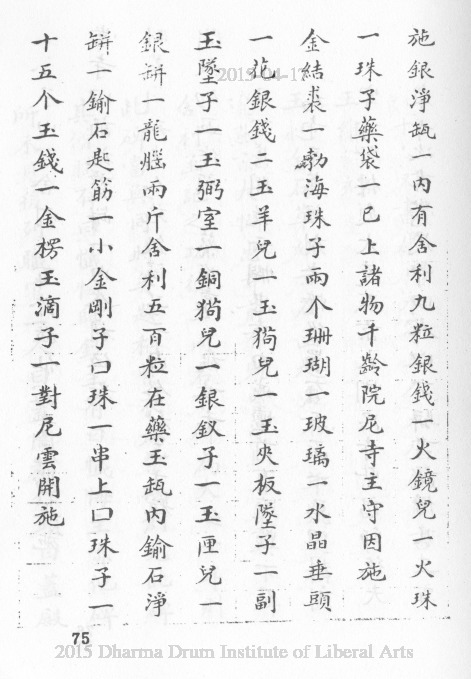 施銀淨缻一內有舍利九粒銀錢一火鏡兒一火珠
一珠子藥袋一已上諸物千齡院尼寺主守因施
金結裘一勃海珠子兩个珊瑚一玻璃一水晶垂頭
一花銀錢二玉羊兒一玉猫兒一玉夾板墜子一副
玉墜子一玉弼室一銅猫兒一銀釵子一玉匣兒一
銀缾一龍腦兩片舍利五百粒在藥玉缻內鍮石淨
缾一鍮石匙筯一小金剛子口珠一串上口珠子一
十五个玉錢一金楞玉滴子一對尼雲開施
75
2015-04-17
2015 Dharma Drum Institute of Liberal Arts